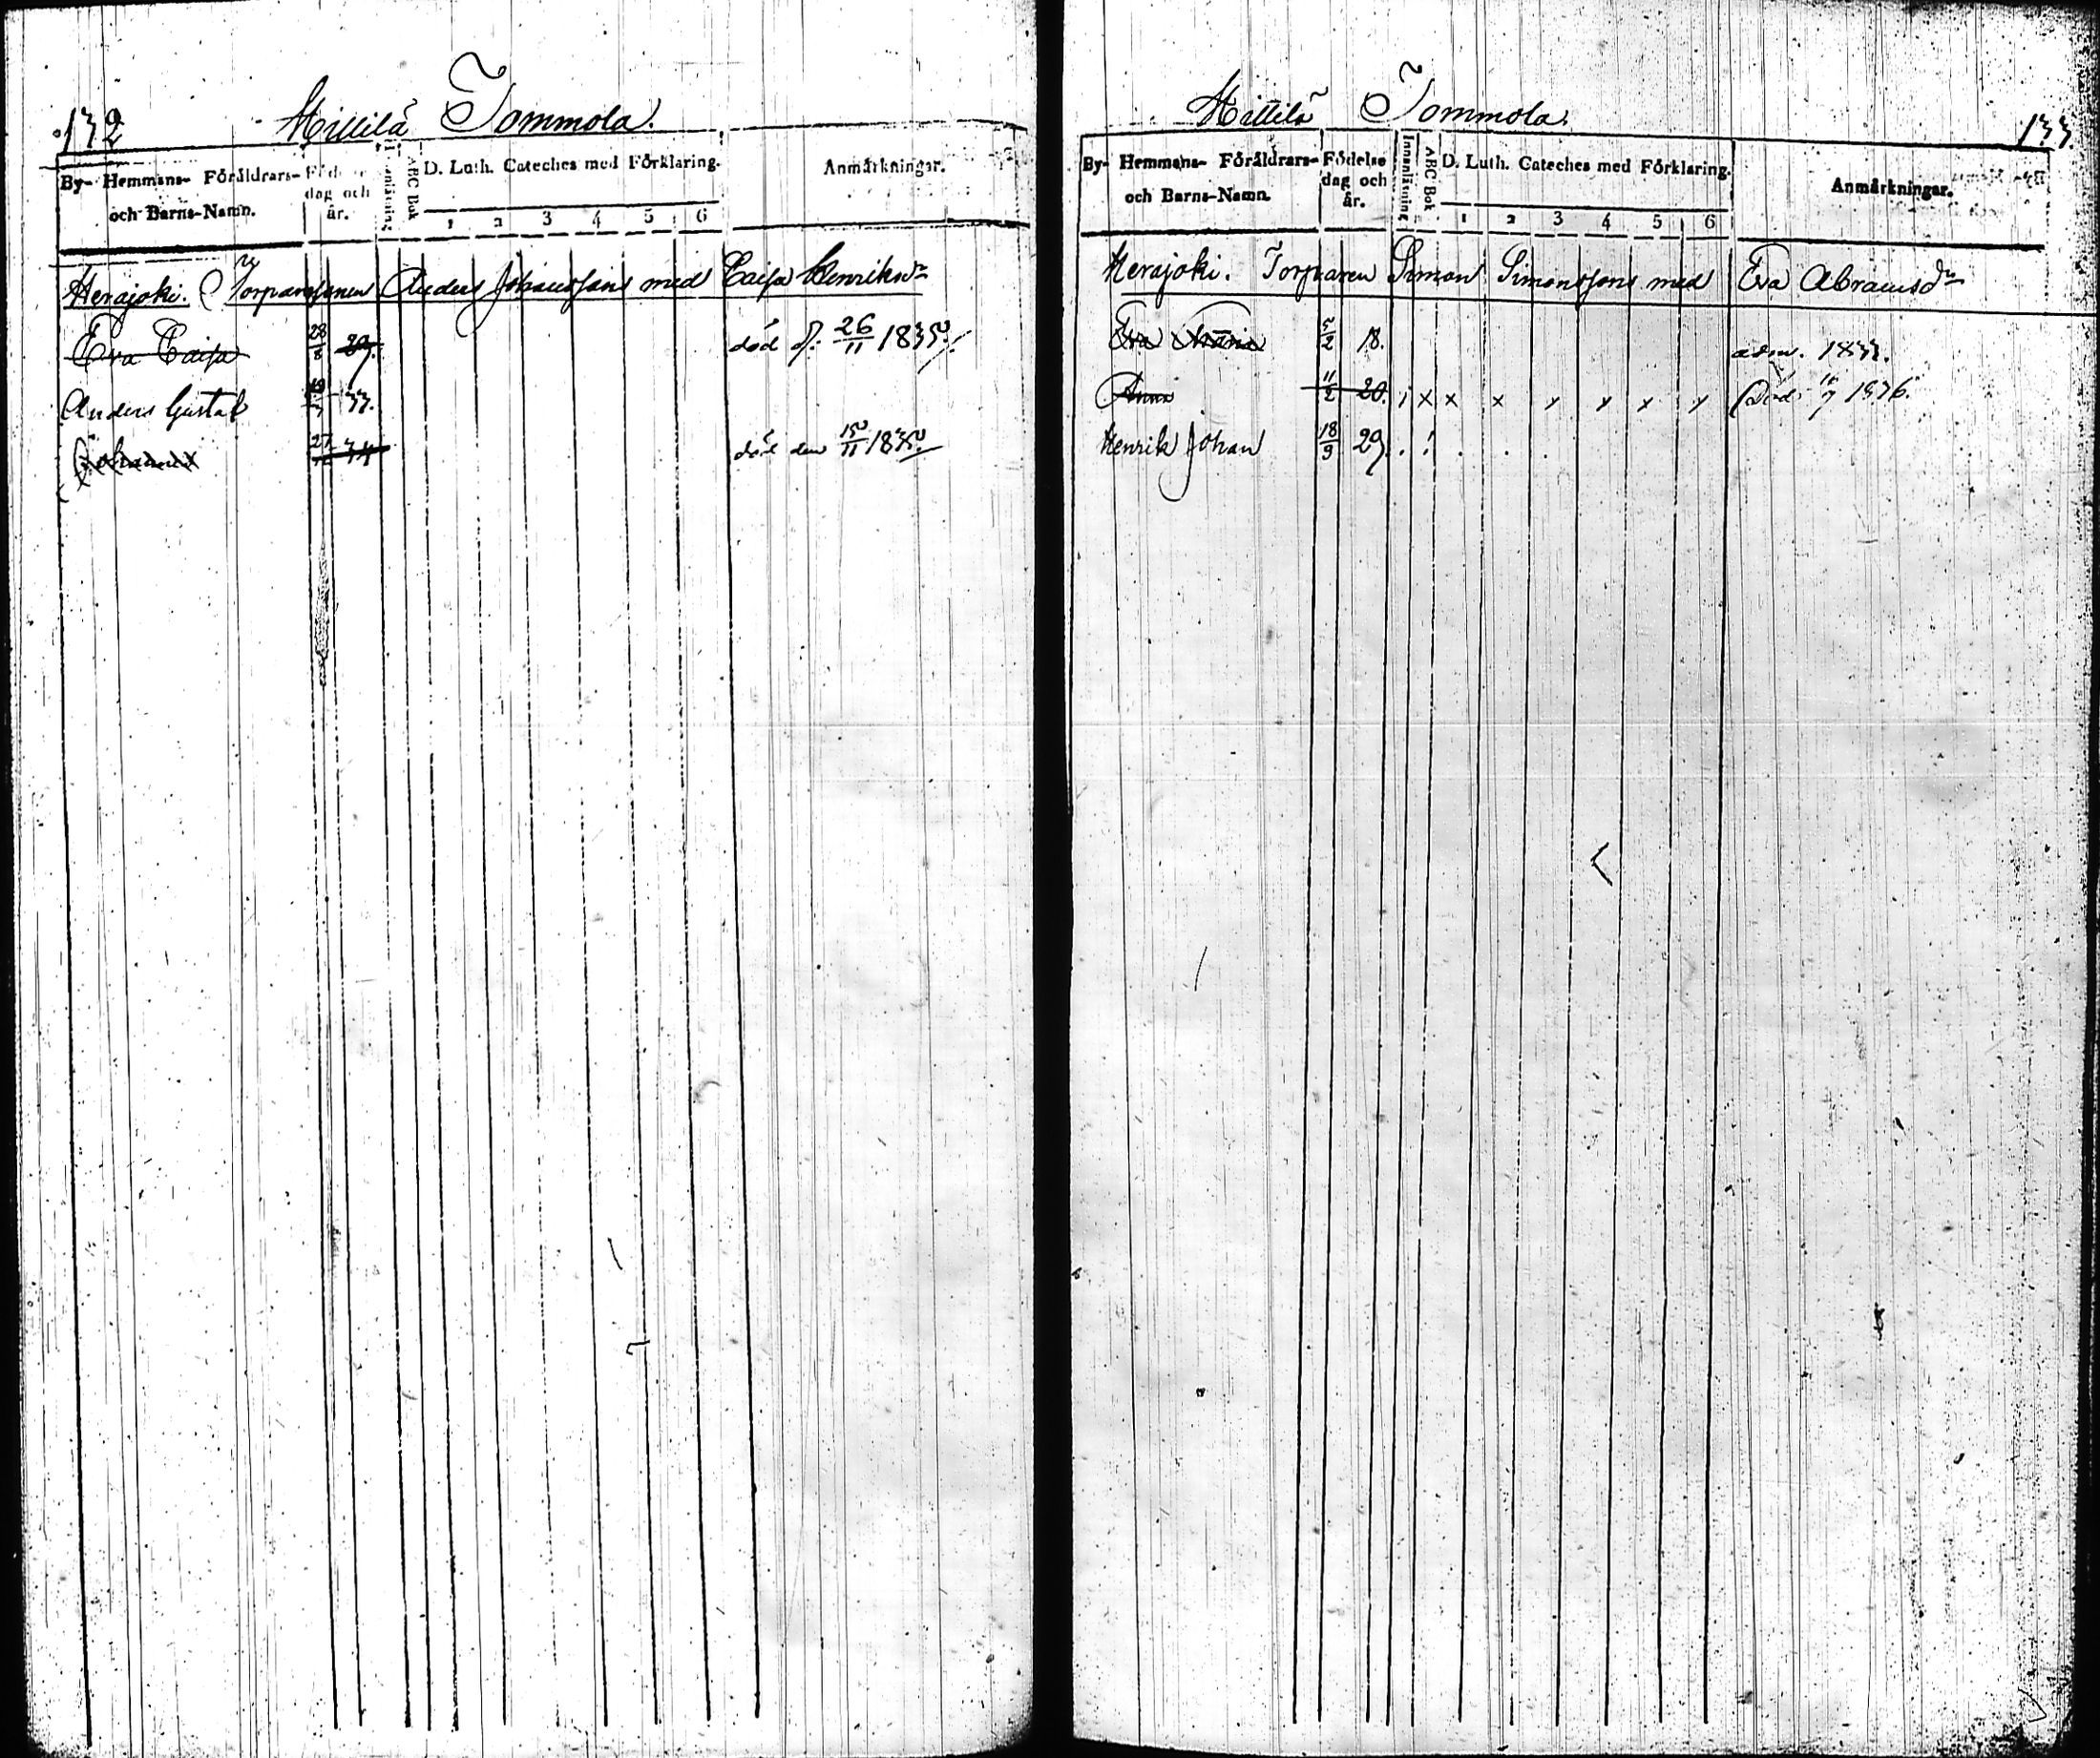 132
Hillilä Tommola.
By- Hemmans- Föräldrars- och Barns-Namn.
Födelse dag och år.
Innanläsning
ABC Bok
D. Luth. Cateches med Förklaring.
1 2 3 4 5 6
Anmärkningar.
Herajoki. Torparesonen Anders Johanssons med Caisa Henriksdr
Eva Caisa 28/8 29. död d. 26/11 1835.
Anders Gustaf 33.
Johannes 27 34 död den 15/11 1835.
133.
Hillilä Tommola.
By- Hemmans- Föräldrars- och Barns-Namn.
Födelse dag och år.
Innanläsning
ABC Bok
D. Luth. Cateches med Förklaring.
1 2 3 4 5 6
Anmärkningar.
Herajoki. Torparen Simon Simonssons med Eva Abramsdr
Eva Maria 5/2 18. adm. 1833.
Anna 11/2 20. i x x x x x x x Död 1836.
Henrik Johan 18/9 29.